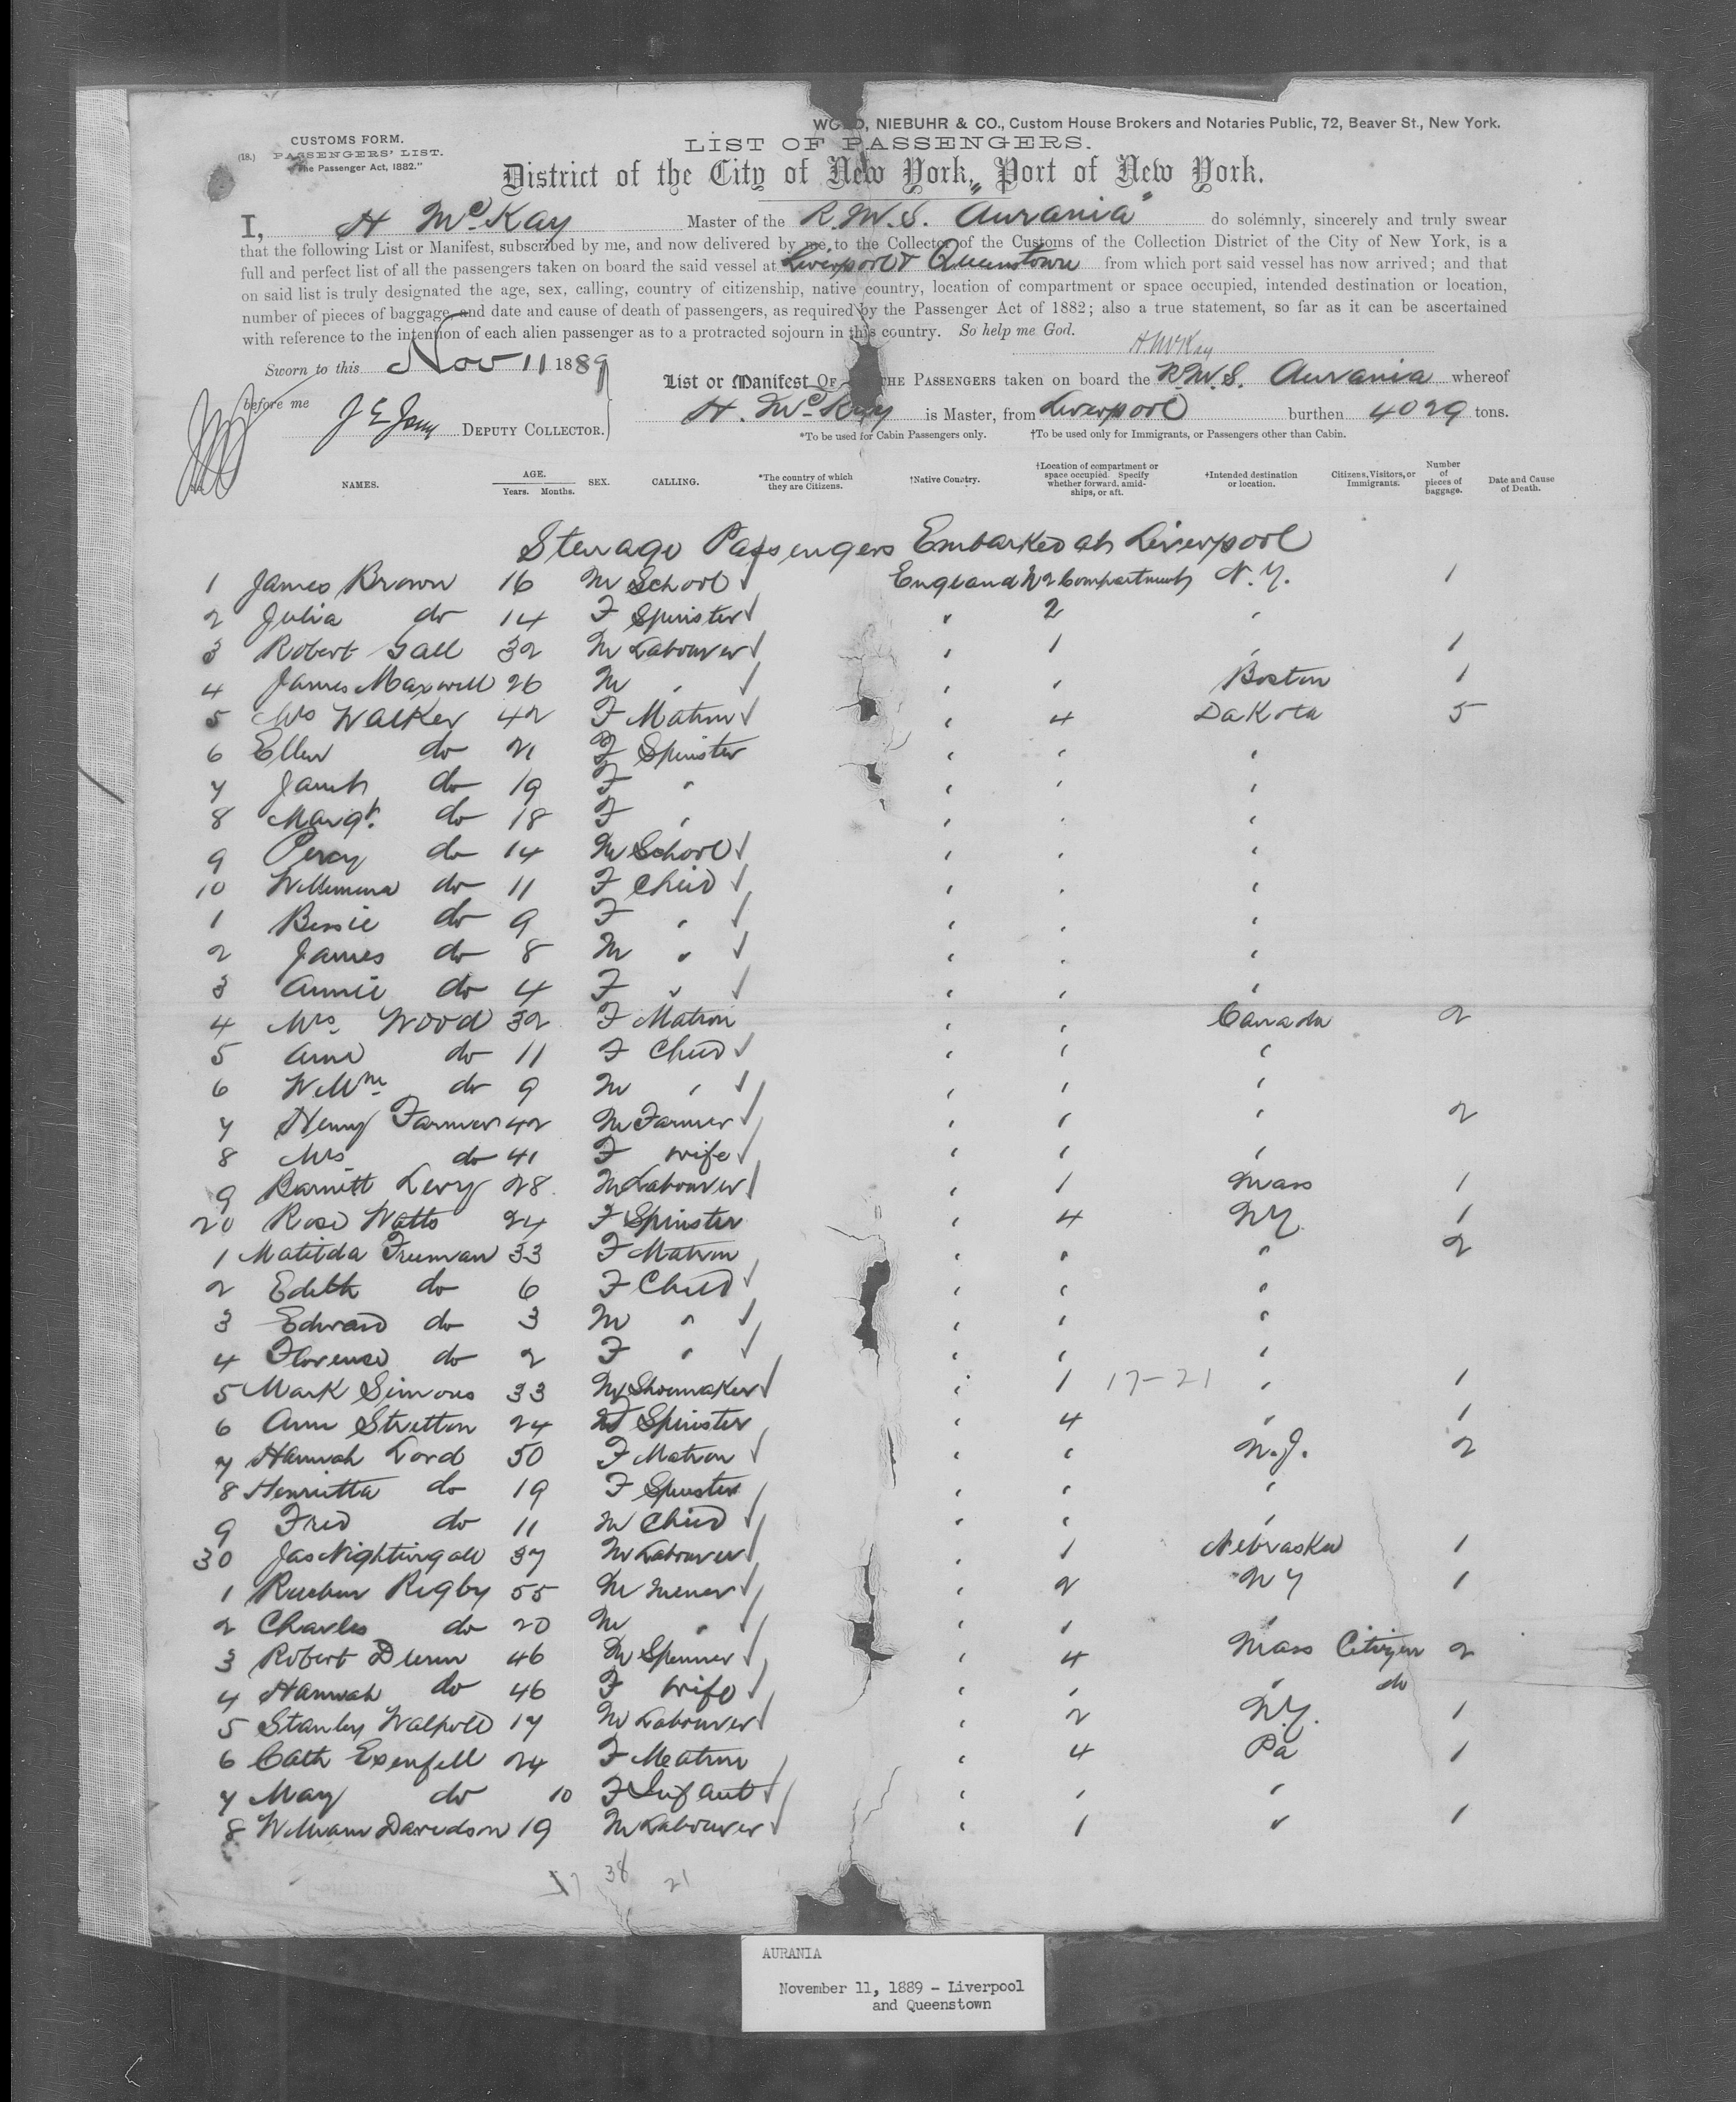 WOOD, NIEBUHR & CO., Custom House Brokers and Notaries Public, 72, Beaver St., New York.
CUSTOMS FORM.
(18.) PASSENGERS' LIST.
"The Passenger Act, 1882."
LIST OF PASSENGERS.
District of the City of New York, Port of New York.
I, H McKay Master of the R.M.S. "Aurania" do solemnly, sincerely and truly swear
that the following List or Manifest, subscribed by me, and now delivered by me to the Collector of the Customs of the Collection District of the City of New York, is a
full and perfect list of all the passengers taken on board the said vessel at Liverpool & Queenstown from which port said vessel has now arrived; and that
on said list is truly designated the age, sex, calling, country of citizenship, native country, location of compartment or space occupied, intended destination or location,
number of pieces of baggage, and date and cause of death of passengers, as required by the Passenger Act of 1882; also a true statement, so far as it can be ascertained
with reference to the intention of each alien passenger as to a protracted sojourn in this country. So help me God.
H. McKay
Sworn to this Nov 11 1889
before me
DEPUTY COLLECTOR.
List or Manifest OF THE PASSENGERS taken on board the R.M.S. Aurania whereof
H. McKay is Master, from Liverpool burthen 4029 tons.
*To be used for Cabin Passengers only. †To be used only for Immigrants, or Passengers other than Cabin.
NAMES. AGE. Years. Months. SEX. CALLING. *The country of which they are Citizens. †Native Country. †Location of compartment or space occupied. Specify whether forward, amidships, or aft. †Intended destination or location. Citizens, Visitors, or Immigrants. Number of pieces of baggage. Date and Cause of Death.
Steerage Passengers Embarked at Liverpool
1 James Brown 16 M School England No 2 Compartment N.Y. 1
2 Julia do 14 F Spinster " 2 "
3 Robert Gall 32 M Labourer " 1 " 1
4 James Maxwell 26 M " " " Boston 1
5 Mrs Walker 42 F Matron " 4 Dakota 5
6 Ellen do 21 F Spinster " " "
7 Janet do 19 F " " " "
8 Margt. do 18 F " " " "
9 Percy do 14 M School " " "
10 Willemina do 11 F Child " " "
1 Bessie do 9 F " " " "
2 James do 8 M " " " "
3 Annie do 4 F " " " "
4 Mrs. Wood 32 F Matron " " Canada 2
5 Ann do 11 F Child " " "
6 Willm do 9 M " " " "
7 Henry Farmer 42 M Farmer " " " 2
8 Mrs do 41 F wife " " "
9 Barnett Levy 28 M Labourer " 1 Mass 1
20 Rose Watts 24 F Spinster " 4 NY 1
1 Matilda Freeman 33 F Matron " " " 2
2 Edith do 6 F Child " " "
3 Edward do 3 M " " " "
4 Florence do 2 F " " " "
5 Mark Simons 33 M Shoemaker " 1 17-21 " 1
6 Ann Stretton 24 F Spinster " 4 " 1
7 Hannah Lord 50 F Matron " " N.J. 2
8 Henrietta do 19 F Spinster " " "
9 Fred do 11 M Child " " "
30 Jas Nightingale 37 M Labourer " 1 Nebraska 1
1 Rueben Rigby 55 M Miner " 2 NY 1
2 Charles do 20 M " " " "
3 Robert Dunn 46 M Spinner " 4 Mass Citizen 2
4 Hannah do 46 F wife " " " do
5 Stanley Walpole 17 M Labourer " 2 NY. 1
6 Cath Exenfell 24 F Matron " 4 Pa 1
7 May do 10 F Infant " " "
8 William Davidson 19 M Labourer " 1 " 1
17 38 21
AURANIA
November 11, 1889 - Liverpool
and Queenstown